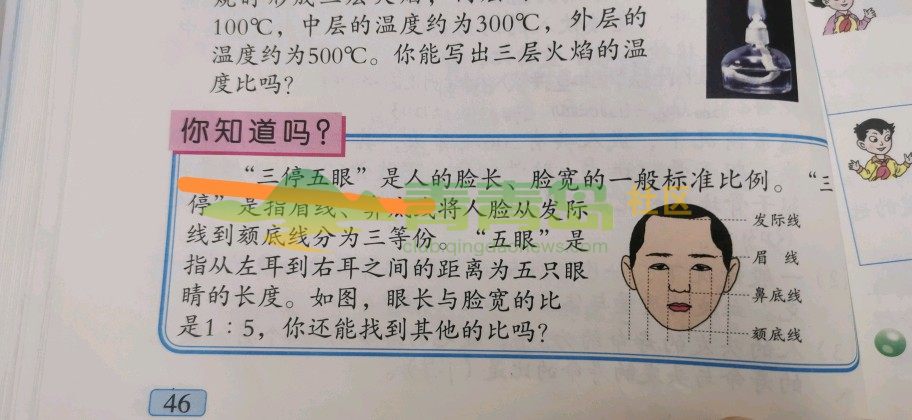 100℃，中层的温度约为300℃，外层的
温度约为500℃。你能写出三层火焰的温
度比吗？
你知道吗？
“三停五眼”是人的脸长、脸宽的一般标准比例。“三
停”是指眉线、鼻底线将人脸从发际
线到颏底线分为三等份。“五眼”是
指从左耳到右耳之间的距离为五只眼
睛的长度。如图，眼长与脸宽的比
是1：5，你还能找到其他的比吗？
发际线
眉 线
鼻底线
颏底线
青青岛
社区
46